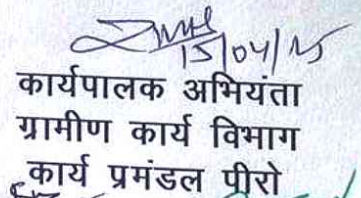 15/04/15
कार्यपालक अभियंता
ग्रामीण कार्य विभाग
कार्य प्रमंडल पीरो